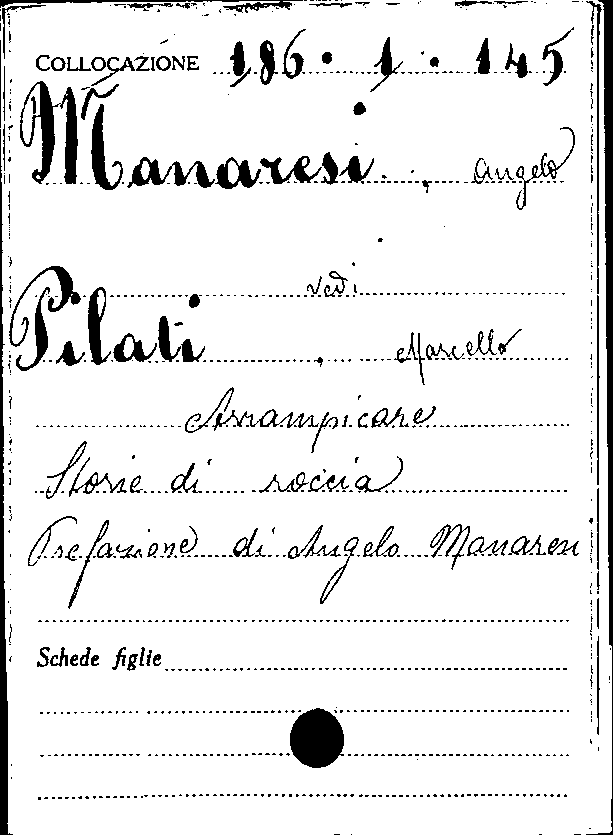 COLLOCAZIONE 186 . 1 . 145
Manaresi , Angelo
vedi
Pilati , Marcello
Arrampicare
Storie di roccia
Prefazione di Angelo Manaresi
Schede figlie